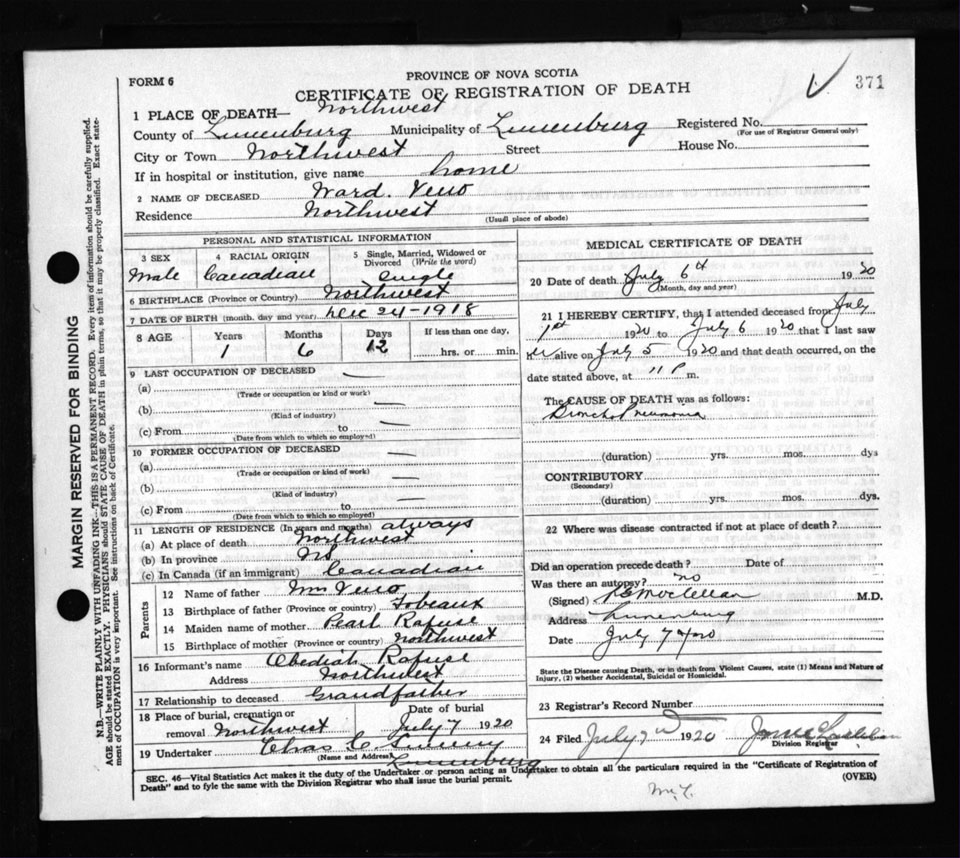 FORM 6
PROVINCE OF NOVA SCOTIA
CERTIFICATE OF REGISTRATION OF DEATH
371
1 PLACE OF DEATH— Northwest
County of Lunenburg Municipality of Lunenburg Registered No.
(For use of Registrar General only)
City or Town Northwest Street House No.
If in hospital or institution, give name home
2 NAME OF DECEASED Ward. Veno
Residence Northwest
(Usual place of abode)
MARGIN RESERVED FOR BINDING
N.B.—WRITE PLAINLY WITH UNFADING INK—THIS IS A PERMANENT RECORD. Every item of information should be carefully supplied.
AGE should be stated EXACTLY. PHYSICIANS should STATE CAUSE OF DEATH in plain terms, so that it may be properly classified. Exact state-
ment of OCCUPATION is very important. See instructions on back of Certificate.
PERSONAL AND STATISTICAL INFORMATION
3 SEX 4 RACIAL ORIGIN 5 Single, Married, Widowed or
Divorced (Write the word)
Male Canadian Single
6 BIRTHPLACE (Province or Country) Northwest
7 DATE OF BIRTH (month, day and year) Dec 24-1918
8 AGE Years Months Days If less than one day,
1 6 12 hrs. or min.
9 LAST OCCUPATION OF DECEASED —
(a)
(Trade or occupation or kind or work)
(b) —
(Kind of industry)
(c) From to —
(Date from which to which so employed)
10 FORMER OCCUPATION OF DECEASED
(a) —
(Trade or occupation or kind of work)
(b) —
(Kind of industry)
(c) From to —
(Date from which to which so employed)
11 LENGTH OF RESIDENCE (In years and months) always
(a) At place of death Northwest
(b) In province NS
(c) In Canada (if an immigrant) Canadian
Parents
12 Name of father Wm Veno
13 Birthplace of father (Province or country) Fobeaux
14 Maiden name of mother Pearl Rafuse
15 Birthplace of mother (Province or country) Northwest
16 Informant's name Obediah Rafuse
Address Northwest
17 Relationship to deceased Grandfather
18 Place of burial, cremation or Date of burial
removal Northwest July 7 1920
19 Undertaker Chas
(Name and Address) Lunenburg
MEDICAL CERTIFICATE OF DEATH
20 Date of death July 6th 1920
(Month, day and year)
21 I HEREBY CERTIFY, that I attended deceased from July
1st 1920 to July 6 1920 that I last saw
alive on July 5 1920 and that death occurred, on the
date stated above, at 11 P m.
The CAUSE OF DEATH was as follows:
Broncho Pneumonia
(duration) yrs. mos. dys
CONTRIBUTORY
(Secondary)
(duration) yrs. mos. dys.
22 Where was disease contracted if not at place of death?
Did an operation precede death? Date of
Was there an autopsy? no
(Signed) M.D.
Address Lunenburg
Date July 7
State the Disease causing Death, or in death from Violent Causes, state (1) Means and Nature of
Injury, (2) whether Accidental, Suicidal or Homicidal.
23 Registrar's Record Number
24 Filed July 7 1920
Division Registrar
SEC. 46—Vital Statistics Act makes it the duty of the Undertaker or person acting as Undertaker to obtain all the particulars required in the "Certificate of Registration of
Death" and to fyle the same with the Division Registrar who shall issue the burial permit. (OVER)